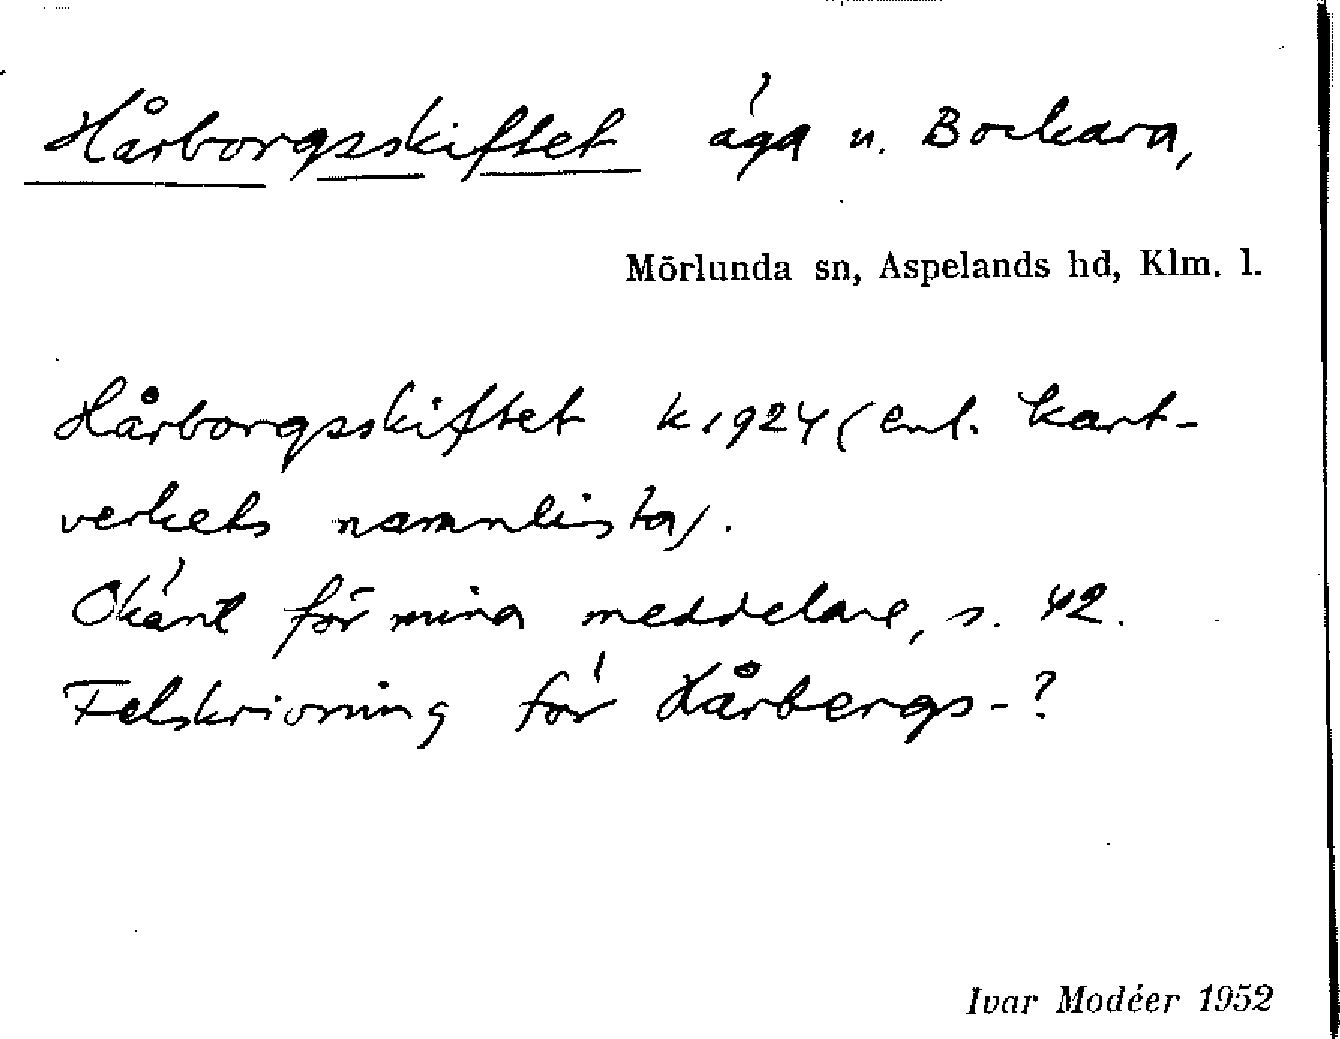 Hårborgsskiftet äga u. Bockara,
Mörlunda sn, Aspelands hd, Klm. l.
Hårborgsskiftet k 1924 (enl. kart-
verkets namnlista).
Okänt för mina meddelare, s. 42.
Felskrivning för Hårbergs-?
Ivar Modéer 1952